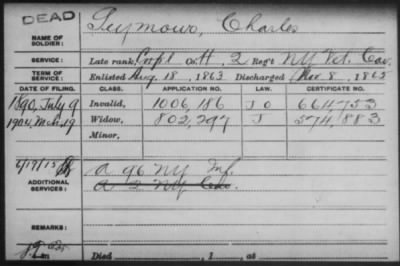 DEAD
Seymour, Charles
NAME OF SOLDIER:
SERVICE: Late rank, Corpl Co. H, 2 Reg't NY Vet. Cav.
TERM OF SERVICE: Enlisted Aug. 18, 1863 Discharged Nov. 8, 1865
DATE OF FILING. CLASS. APPLICATION NO. LAW. CERTIFICATE NO.
1890, July 9 Invalid, 1006,186 J O 664753
1904, Mch. 19 Widow, 802,297 J 574,883
Minor,
ADDITIONAL SERVICES: A 96 NY Inf.
A 2 NY Cav.
REMARKS:
Died , 1 , at